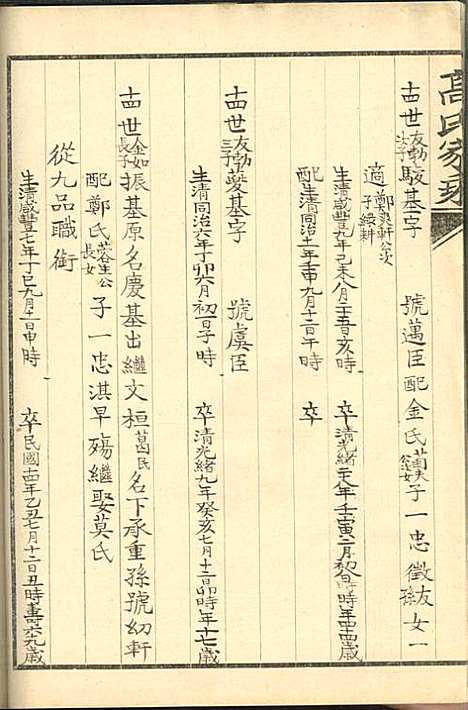 高氏家
十四世友勃駿基字 號邁臣配金氏蘭夫公女子一忠徵女一
適鄭爽軒公次子綬耕
生清咸豐九年己未八月二十五日亥時 卒清光緒二十八年壬寅二月初八日時年四十四歲
配生清同治十一年壬申九月十二日午時 卒
十四世友勃三子夔基字 號虞臣
生清同治六年丁卯六月初一日子時 卒清光緒九年癸亥七月十二日卯時年十七歲
十四世金如長子振基原名慶基出繼文桓葛民名下承重孫號幼軒
配鄭氏蓉生公長女子一忠淇早殤繼娶莫氏
從九品職銜
生清咸豐七年丁巳九月十一日申時 卒民國十四年乙丑七月十二日丑時壽六十九歲